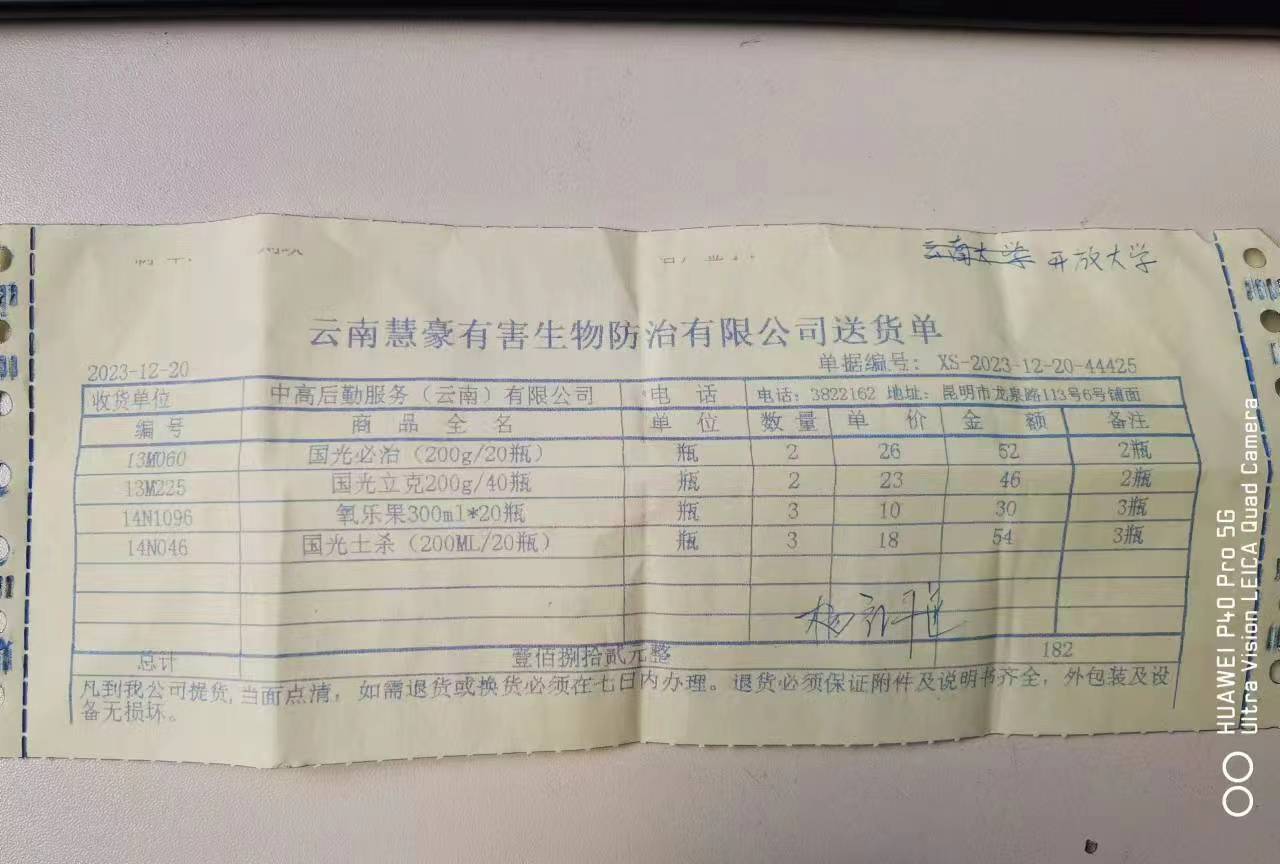 云南大学 开放大学
云南慧豪有害生物防治有限公司送货单
2023-12-20 单据编号: XS-2023-12-20-44425
收货单位 中高后勤服务（云南）有限公司 电 话 电话: 3822162 地址: 昆明市龙泉路113号6号铺面
编 号 商 品 全 名 单 位 数 量 单 价 金 额 备注
13M060 国光必治（200g/20瓶） 瓶 2 26 52 2瓶
13M225 国光立克200g/40瓶 瓶 2 23 46 2瓶
14N1096 氧乐果300ml*20瓶 瓶 3 10 30 3瓶
14N046 国光土杀（200ML/20瓶） 瓶 3 18 54 3瓶
总计 壹佰捌拾贰元整 182
凡到我公司提货,当面点清，如需退货或换货必须在七日内办理。退货必须保证附件及说明书齐全，外包装及设
备无损坏。
HUAWEI P40 Pro 5G
Ultra Vision LEICA Quad Camera